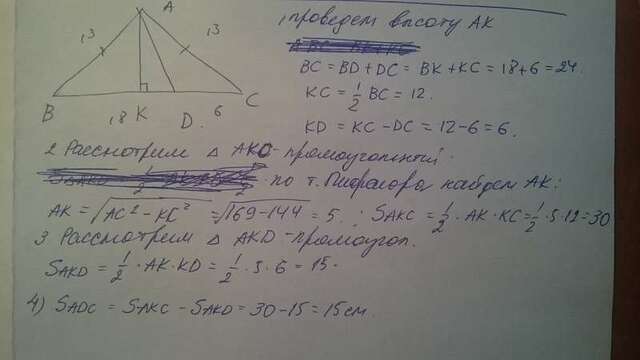 A
13
13
B
18
K
D.
6
C
1 проведем высоту AK
BC = BD + DC = BK + KC = 18 + 6 = 24.
KC = 1/2 BC = 12.
KD = KC - DC = 12 - 6 = 6.
2 Рассмотрим △ AKC - прямоугольный.
по т. Пифагора найдем AK:
AK = √(AC² - KC²) = √(169 - 144) = 5. ; SAKC = 1/2 · AK · KC = 1/2 · 5 · 12 = 30
3 Рассмотрим △ AKD - прямоугол.
SAKD = 1/2 · AK · KD = 1/2 · 5 · 6 = 15.
4) SADC = SAKC - SAKD = 30 - 15 = 15 см.